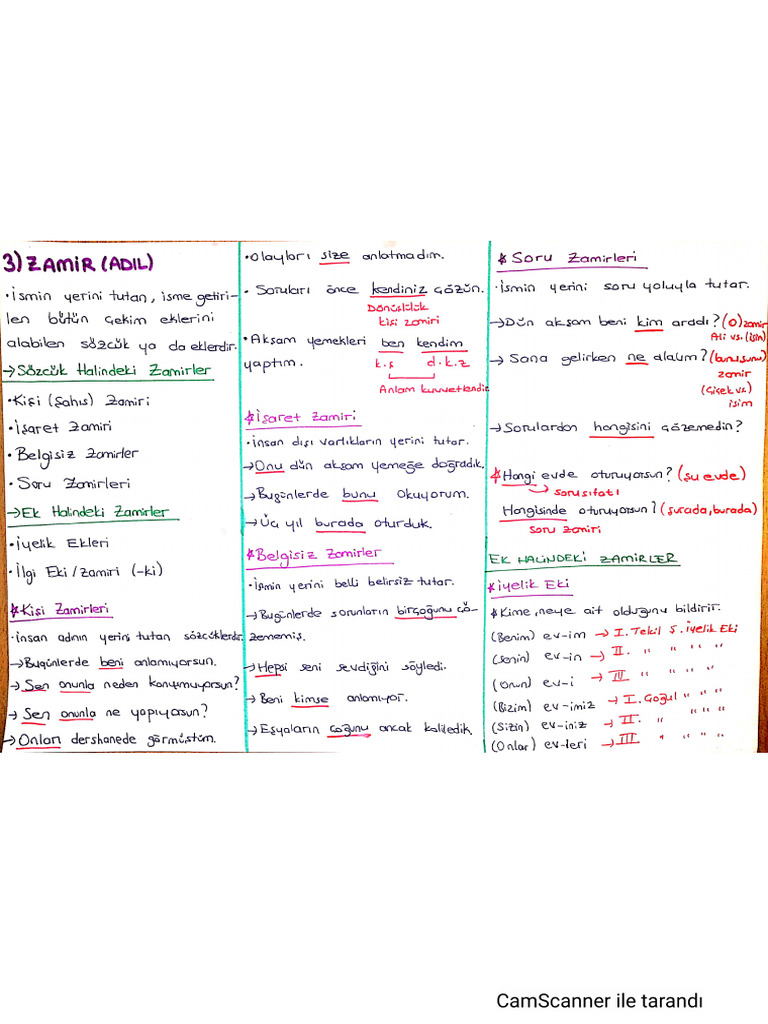 3) ZAMİR (ADIL)
• İsmin yerini tutan, isme getiri-
len bütün çekim eklerini
alabilen sözcük ya da eklerdir.
→ Sözcük Halindeki Zamirler
• Kişi (Şahıs) Zamiri
• İşaret Zamiri
• Belgisiz Zamirler
• Soru Zamirleri
→ Ek Halindeki Zamirler
• İyelik Ekleri
• İlgi Eki / Zamiri (-ki)
* Kişi Zamirleri
• İnsan adının yerini tutan sözcüklerdir.
→ Bugünlerde beni anlamıyorsun.
→ Sen onunla neden konuşmuyorsun?
→ Sen onunla ne yapıyorsun?
→ Onları dershanede görmüştüm.
• Olayları size anlatmadım.
• Soruları önce kendiniz çözün.
Dönüşlülük
kişi zamiri
• Akşam yemekleri ben kendim
yaptım.
k.ş d.k.z
Anlam kuvvetlendir
* İşaret Zamiri
• İnsan dışı varlıkların yerini tutar.
→ Onu dün akşam yemeğe doğradık.
→ Bugünlerde bunu okuyorum.
→ Üç yıl burada oturduk.
* Belgisiz Zamirler
• İsmin yerini belli belirsiz tutar.
→ Bugünlerde sorunların birçoğunu çö-
zememiş.
→ Hepsi seni sevdiğini söyledi.
→ Beni kimse anlamıyor.
→ Eşyaların çoğunu ancak kaliledik.
* Soru Zamirleri
• İsmin yerini soru yoluyla tutar.
→ Dün akşam beni kim aradı? (O) zamir
Ali vs. (isim)
→ Sana gelirken ne alayım? (bunu, şunu)
zamir
(Çiçek vs.)
isim
→ Sorulardan hangisini çözemedin?
* Hangi evde oturuyorsun? (şu evde)
soru sıfatı
Hangisinde oturuyorsun? (şurada, burada)
soru zamiri
EK HALİNDEKİ ZAMİRLER
* İyelik Eki
* Kime, neye ait olduğunu bildirir.
(Benim) ev-im → I. Tekil Ş. İyelik Eki
(Senin) ev-in → II. " " " "
(Onun) ev-i → III " " " "
(Bizim) ev-imiz → I. Çoğul " " "
(Sizin) ev-iniz → II. " " " "
(Onlar) ev-leri → III " " " "
CamScanner ile tarandı